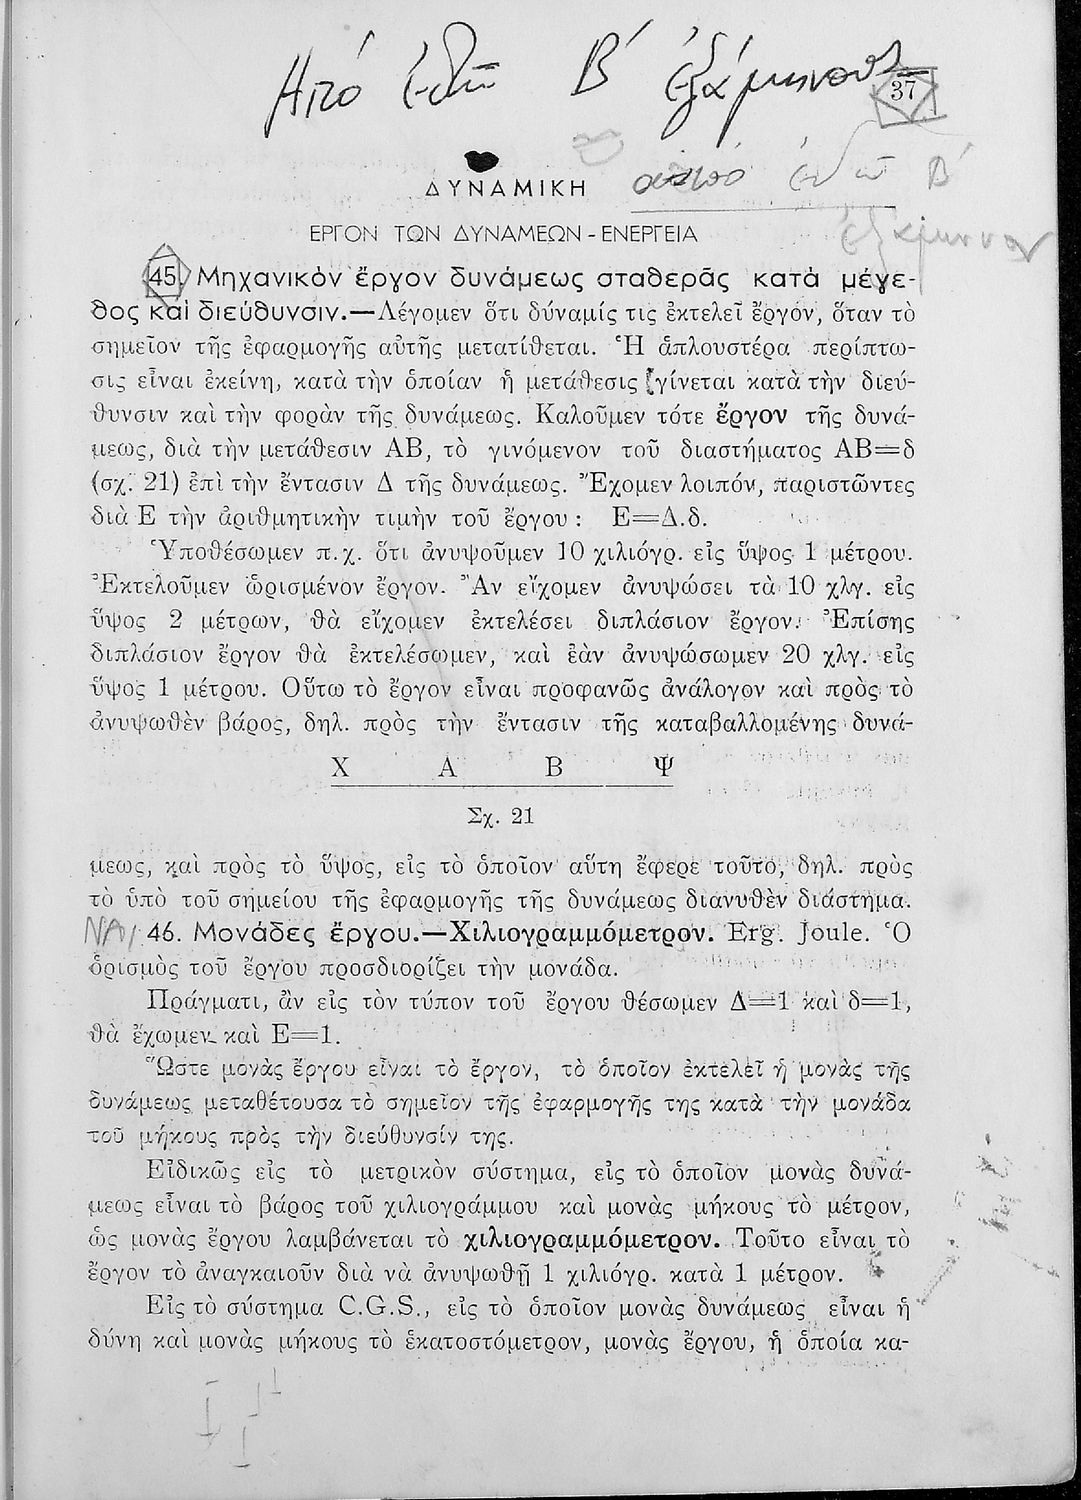 Ἀπό ἐδῶ Β΄ ἑξάμηνους
37
ἀπό ἐδῶ Β΄
ΔΥΝΑΜΙΚΗ
ἑξάμηνον
ΕΡΓΟΝ ΤΩΝ ΔΥΝΑΜΕΩΝ - ΕΝΕΡΓΕΙΑ
45. Μηχανικὸν ἔργον δυνάμεως σταθερᾶς κατὰ μέγε-
θος καὶ διεύθυνσιν.—Λέγομεν ὅτι δύναμίς τις ἐκτελεῖ ἔργον, ὅταν τὸ
σημεῖον τῆς ἐφαρμογῆς αὐτῆς μετατίθεται. Ἡ ἁπλουστέρα περίπτω-
σις εἶναι ἐκείνη, κατὰ τὴν ὁποίαν ἡ μετάθεσις γίνεται κατὰ τὴν διεύ-
θυνσιν καὶ τὴν φορὰν τῆς δυνάμεως. Καλοῦμεν τότε ἔργον τῆς δυνά-
μεως, διὰ τὴν μετάθεσιν ΑΒ, τὸ γινόμενον τοῦ διαστήματος ΑΒ=δ
(σχ. 21) ἐπὶ τὴν ἔντασιν Δ τῆς δυνάμεως. Ἔχομεν λοιπόν, παριστῶντες
διὰ Ε τὴν ἀριθμητικὴν τιμὴν τοῦ ἔργου : Ε=Δ.δ.
Ὑποθέσωμεν π.χ. ὅτι ἀνυψοῦμεν 10 χιλιόγρ. εἰς ὕψος 1 μέτρου.
Ἐκτελοῦμεν ὡρισμένον ἔργον. Ἂν εἴχομεν ἀνυψώσει τὰ 10 χλγ. εἰς
ὕψος 2 μέτρων, θὰ εἴχομεν ἐκτελέσει διπλάσιον ἔργον. Ἐπίσης
διπλάσιον ἔργον θὰ ἐκτελέσωμεν, καὶ ἐὰν ἀνυψώσωμεν 20 χλγ. εἰς
ὕψος 1 μέτρου. Οὕτω τὸ ἔργον εἶναι προφανῶς ἀνάλογον καὶ πρὸς τὸ
ἀνυψωθὲν βάρος, δηλ. πρὸς τὴν ἔντασιν τῆς καταβαλλομένης δυνά-
Χ Α Β Ψ
Σχ. 21
μεως, καὶ πρὸς τὸ ὕψος, εἰς τὸ ὁποῖον αὕτη ἔφερε τοῦτο, δηλ. πρὸς
τὸ ὑπὸ τοῦ σημείου τῆς ἐφαρμογῆς τῆς δυνάμεως διανυθὲν διάστημα.
ΝΑΙ 46. Μονάδες ἔργου.—Χιλιογραμμόμετρον. Erg. Joule. Ὁ
ὁρισμὸς τοῦ ἔργου προσδιορίζει τὴν μονάδα.
Πράγματι, ἂν εἰς τὸν τύπον τοῦ ἔργου θέσωμεν Δ=1 καὶ δ=1,
θὰ ἔχωμεν καὶ Ε=1.
Ὥστε μονὰς ἔργου εἶναι τὸ ἔργον, τὸ ὁποῖον ἐκτελεῖ ἡ μονὰς τῆς
δυνάμεως μεταθέτουσα τὸ σημεῖον τῆς ἐφαρμογῆς της κατὰ τὴν μονάδα
τοῦ μήκους πρὸς τὴν διεύθυνσίν της.
Εἰδικῶς εἰς τὸ μετρικὸν σύστημα, εἰς τὸ ὁποῖον μονὰς δυνά-
μεως εἶναι τὸ βάρος τοῦ χιλιογράμμου καὶ μονὰς μήκους τὸ μέτρον,
ὡς μονὰς ἔργου λαμβάνεται τὸ χιλιογραμμόμετρον. Τοῦτο εἶναι τὸ
ἔργον τὸ ἀναγκαιοῦν διὰ νὰ ἀνυψωθῇ 1 χιλιόγρ. κατὰ 1 μέτρον.
Εἰς τὸ σύστημα C.G.S., εἰς τὸ ὁποῖον μονὰς δυνάμεως εἶναι ἡ
δύνη καὶ μονὰς μήκους τὸ ἑκατοστόμετρον, μονὰς ἔργου, ἡ ὁποία κα-